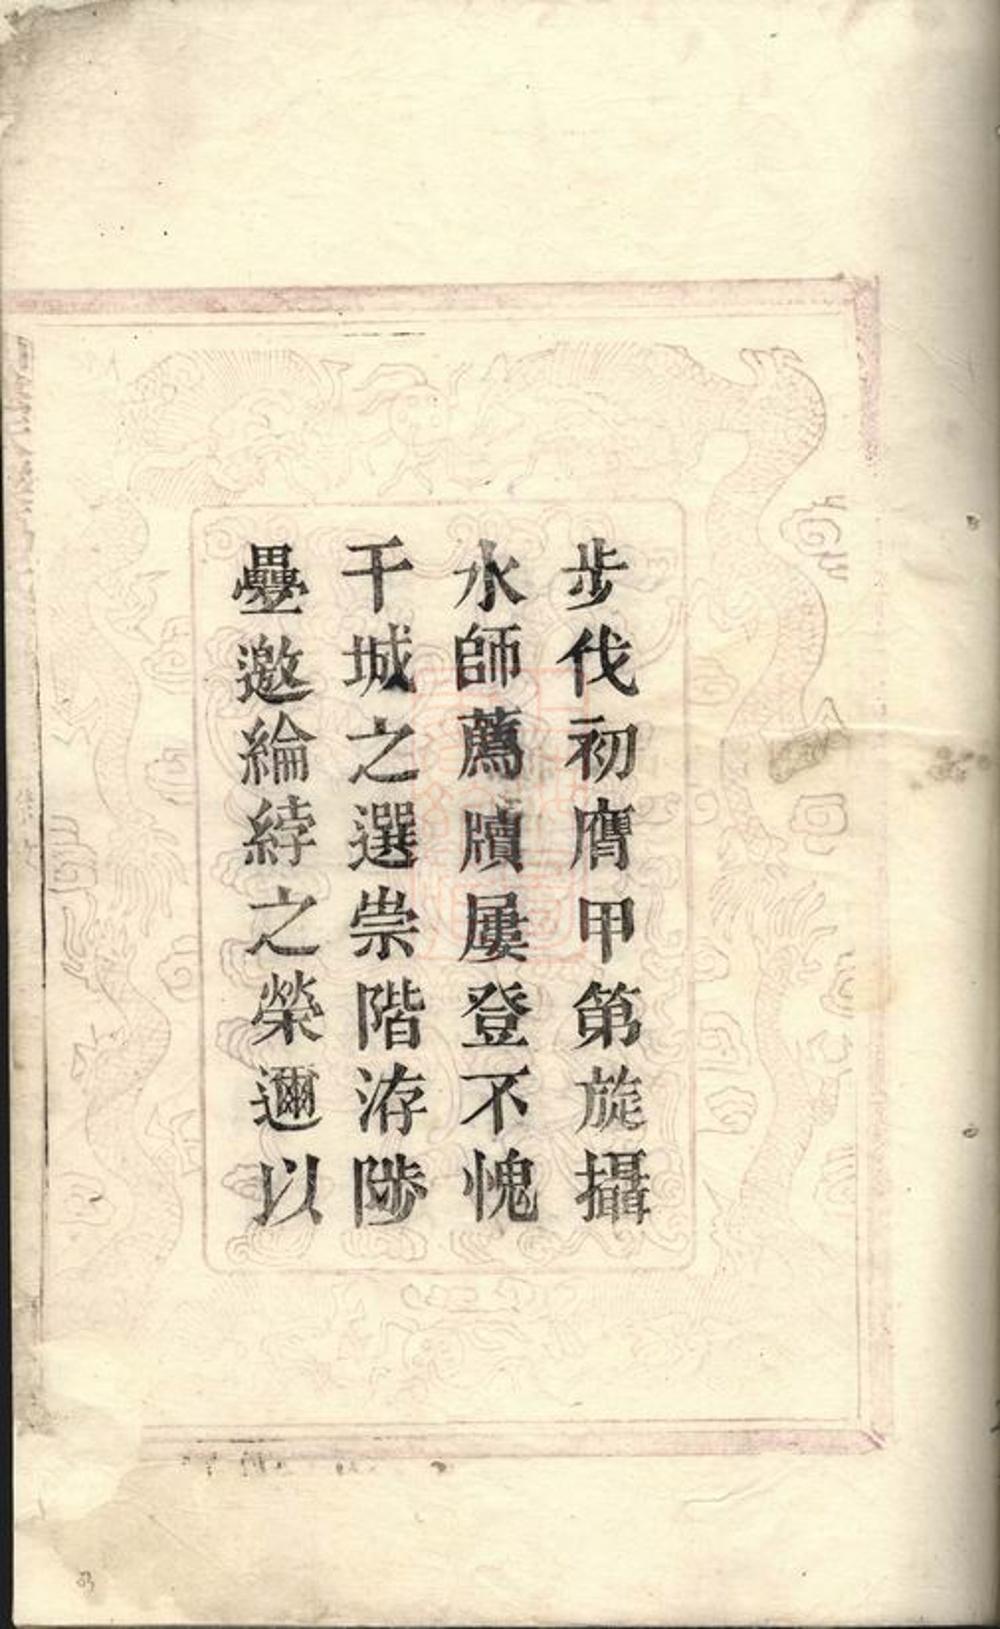 步伐初膺甲第旋攝
水師薦牘屢登不愧
干城之選崇階洊陟
疊邀綸綍之榮邇以